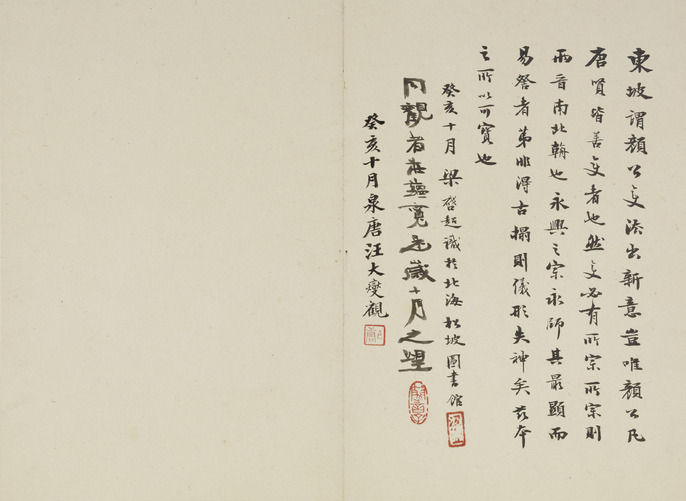 東坡謂顏公變法出新意豈唯顏公凡
唐賢皆善變者也然變必有所宗所宗則
兩晉南北輪也永興之宗永師其最顯而
易詧者第非得古搨則儀形失神矣茲本
之所以可寶也
癸亥十月梁啓超識於北海松坡圖書館
同觀者莊蘊寬是歲十月之望
癸亥十月泉唐汪大燮觀